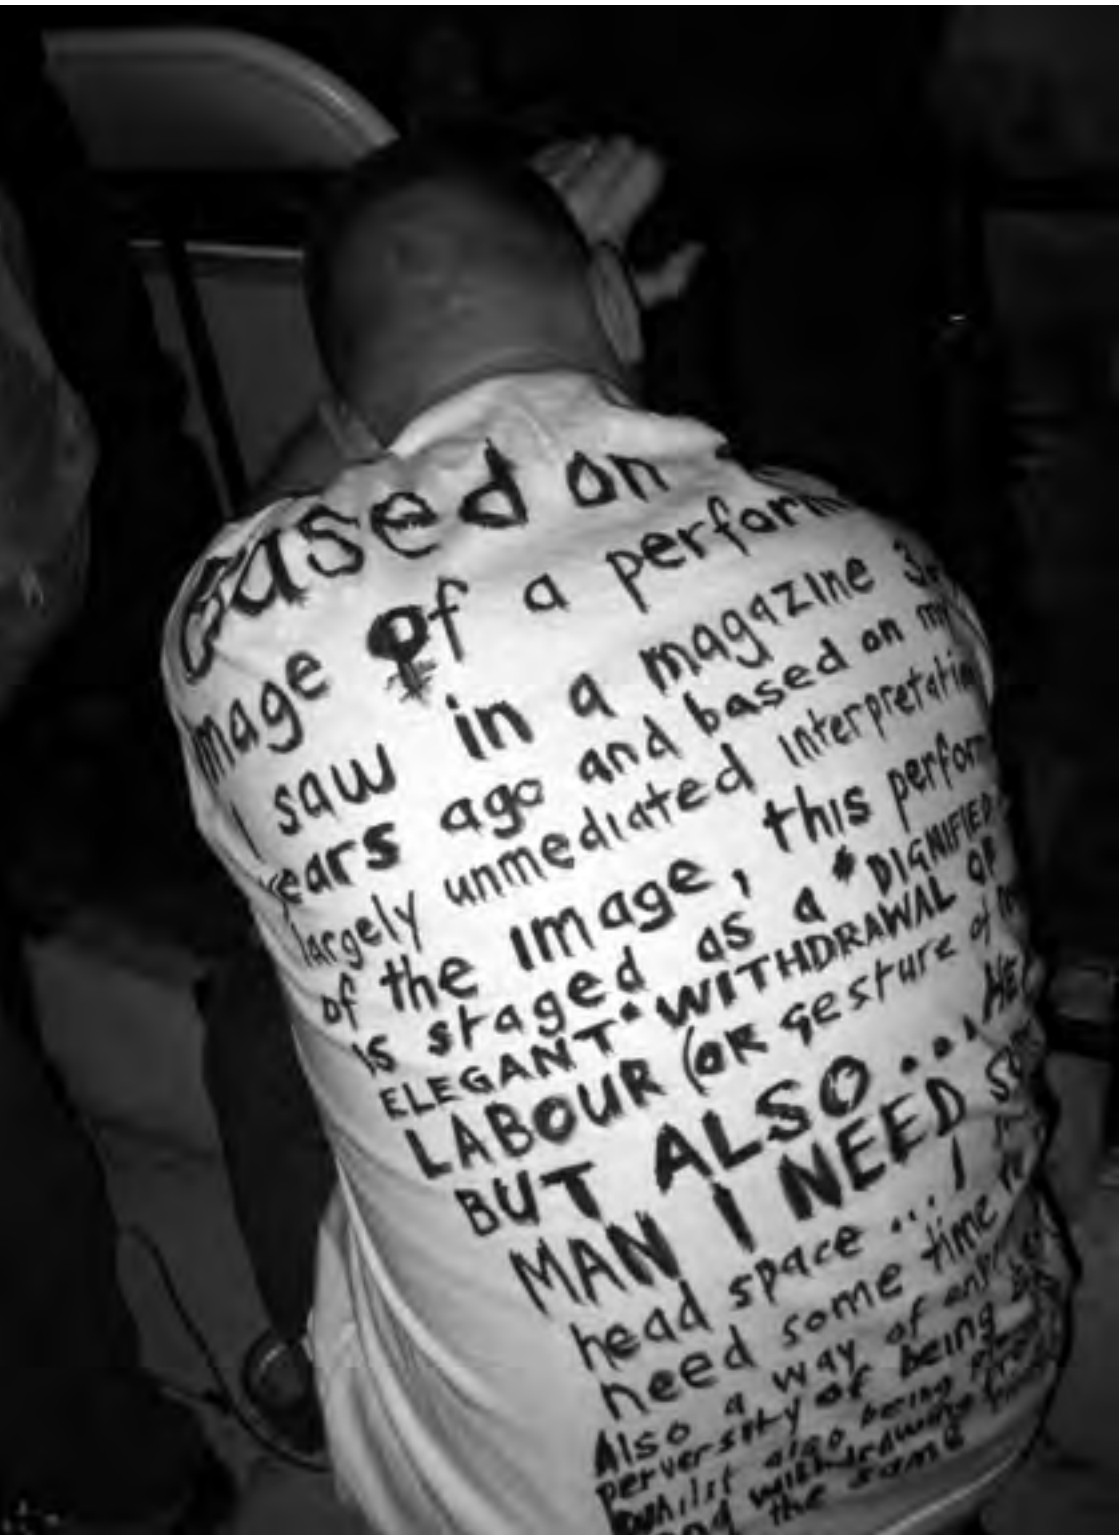 based on
image of a perform
I saw in a magazine 3
years ago and based on my
largely unmediated interpretation
of the image, this perform
is staged as a "DIGNIFIED
ELEGANT" WITHDRAWAL OF
LABOUR (OR gesture of
BUT ALSO... HE
MAN I NEED
head space... I
need some time
Also a way of
perversity of being
whilst also being
and withdrawing
the same